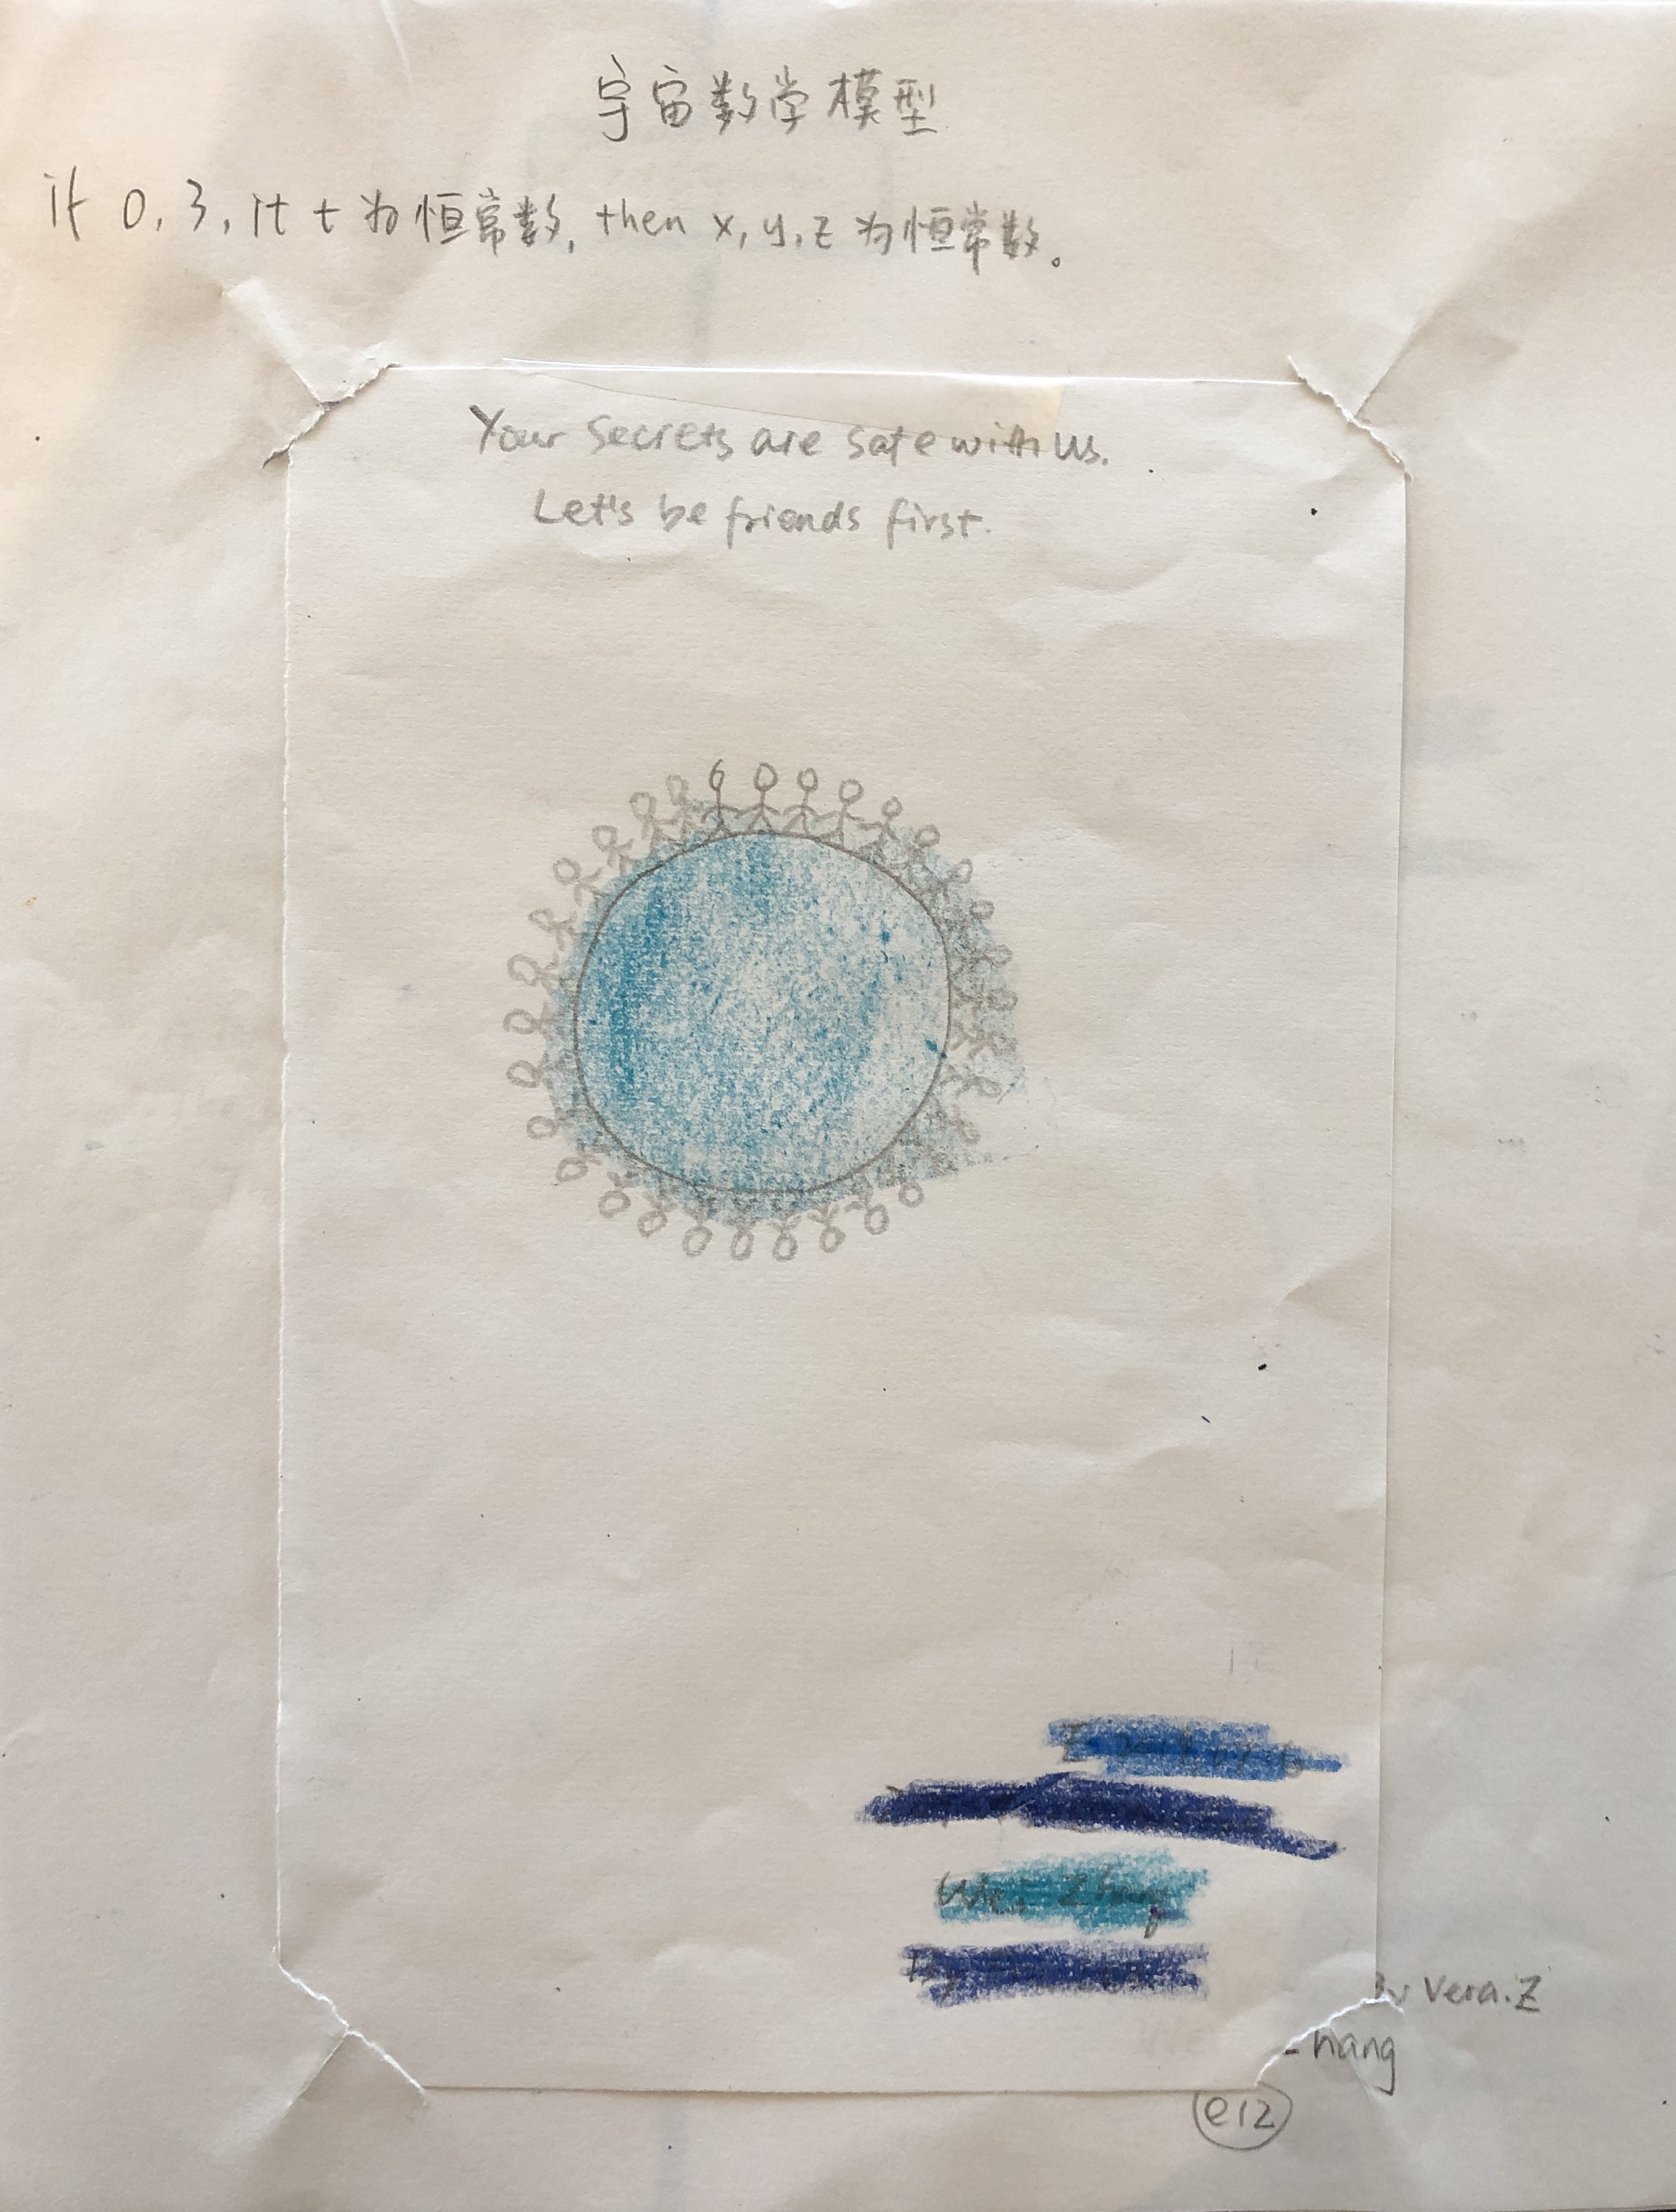 宇宙数学模型
if 0, 3, if t 为恒常数, then x, y, z 为恒常数。
Your secrets are safe with us.
Let's be friends first.
Wei Zhang
By Vera.Z
hang
e12